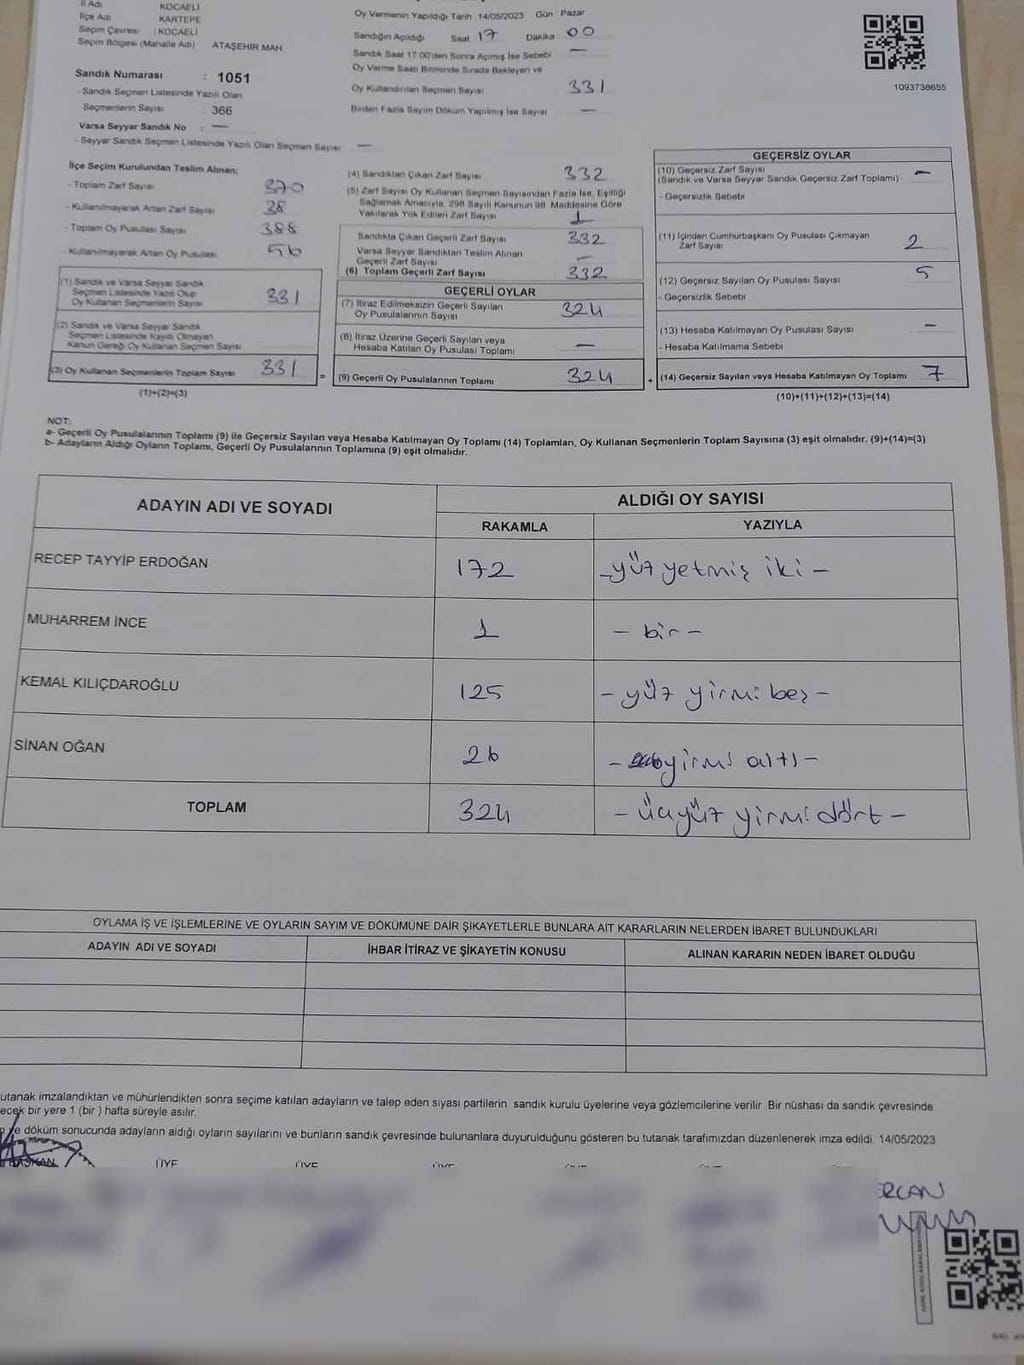 İl Adı KOCAELİ
İlçe Adı KARTEPE
Seçim Çevresi : KOCAELİ
Seçim Bölgesi (Mahalle Adı) ATAŞEHİR MAH.
Sandık Numarası : 1051
- Sandık Seçmen Listesinde Yazılı Olan
Seçmenlerin Sayısı : 366
Varsa Seyyar Sandık No : —
- Seyyar Sandık Seçmen Listesinde Yazılı Olan Seçmen Sayısı —
Oy Vermenin Yapıldığı Tarih : 14/05/2023 Gün Pazar
Sandığın Açıldığı Saat 17 Dakika 00
Sandık Saat 17:00'den Sonra Açılmış İse Sebebi —
Oy Verme Saati Bitiminde Sırada Bekleyen ve
Oy Kullandırılan Seçmen Sayısı 331
Birden Fazla Sayım Döküm Yapılmış İse Sayısı —
1093738655
İlçe Seçim Kurulundan Teslim Alınan;
- Toplam Zarf Sayısı 370
- Kullanılmayarak Artan Zarf Sayısı 38
- Toplam Oy Pusulası Sayısı 388
- Kullanılmayarak Artan Oy Pusulası 56
(1) Sandık ve Varsa Seyyar Sandık
Seçmen Listesinde Yazılı Olup
Oy Kullanan Seçmenlerin Sayısı 331
(2) Sandık ve Varsa Seyyar Sandık
Seçmen Listesinde Kayıtlı Olmayan
Kanun Gereği Oy Kullanan Seçmen Sayısı
(3) Oy Kullanan Seçmenlerin Toplam Sayısı 331
(1)+(2)=(3)
(4) Sandıktan Çıkan Zarf Sayısı 332
(5) Zarf Sayısı Oy Kullanan Seçmen Sayısından Fazla İse, Eşitliği
Sağlamak Amacıyla, 298 Sayılı Kanunun 98. Maddesine Göre
Yakılarak Yok Edilen Zarf Sayısı 1
Sandıkta Çıkan Geçerli Zarf Sayısı 332
Varsa Seyyar Sandıktan Teslim Alınan
Geçerli Zarf Sayısı —
(6) Toplam Geçerli Zarf Sayısı 332
GEÇERLİ OYLAR
(7) İtiraz Edilmeksizin Geçerli Sayılan
Oy Pusulalarının Sayısı 324
(8) İtiraz Üzerine Geçerli Sayılan veya
Hesaba Katılan Oy Pusulası Toplamı —
= (9) Geçerli Oy Pusulalarının Toplamı 324
GEÇERSİZ OYLAR
(10) Geçersiz Zarf Sayısı
(Sandık ve Varsa Seyyar Sandık Geçersiz Zarf Toplamı) —
- Geçersizlik Sebebi
(11) İçinden Cumhurbaşkanı Oy Pusulası Çıkmayan
Zarf Sayısı 2
(12) Geçersiz Sayılan Oy Pusulası Sayısı 5
- Geçersizlik Sebebi
(13) Hesaba Katılmayan Oy Pusulası Sayısı —
- Hesaba Katılmama Sebebi
+ (14) Geçersiz Sayılan veya Hesaba Katılmayan Oy Toplamı 7
(10)+(11)+(12)+(13)=(14)
NOT:
a- Geçerli Oy Pusulalarının Toplamı (9) ile Geçersiz Sayılan veya Hesaba Katılmayan Oy Toplamı (14) Toplamları, Oy Kullanan Seçmenlerin Toplam Sayısına (3) eşit olmalıdır. (9)+(14)=(3)
b- Adayların Aldığı Oyların Toplamı, Geçerli Oy Pusulalarının Toplamına (9) eşit olmalıdır.
ADAYIN ADI VE SOYADI
ALDIĞI OY SAYISI
RAKAMLA YAZIYLA
RECEP TAYYİP ERDOĞAN 172 -yüz yetmiş iki-
MUHARREM İNCE 1 -bir-
KEMAL KILIÇDAROĞLU 125 -yüz yirmi beş-
SİNAN OĞAN 26 - yirmi altı-
TOPLAM 324 -üçyüz yirmi dört-
OYLAMA İŞ VE İŞLEMLERİNE VE OYLARIN SAYIM VE DÖKÜMÜNE DAİR ŞİKAYETLERLE BUNLARA AİT KARARLARIN NELERDEN İBARET BULUNDUKLARI
ADAYIN ADI VE SOYADI İHBAR İTİRAZ VE ŞİKAYETİN KONUSU ALINAN KARARIN NEDEN İBARET OLDUĞU
utanak imzalandıktan ve mühürlendikten sonra seçime katılan adayların ve talep eden siyasi partilerin sandık kurulu üyelerine veya gözlemcilerine verilir. Bir nüshası da sandık çevresinde
ecek bir yere 1 (bir) hafta süreyle asılır.
ve döküm sonucunda adayların aldığı oyların sayılarını ve bunların sandık çevresinde bulunanlara duyurulduğunu gösteren bu tutanak tarafımızdan düzenlenerek imza edildi. 14/05/2023
BAŞKAN ÜYE ÜYE
ERCAN